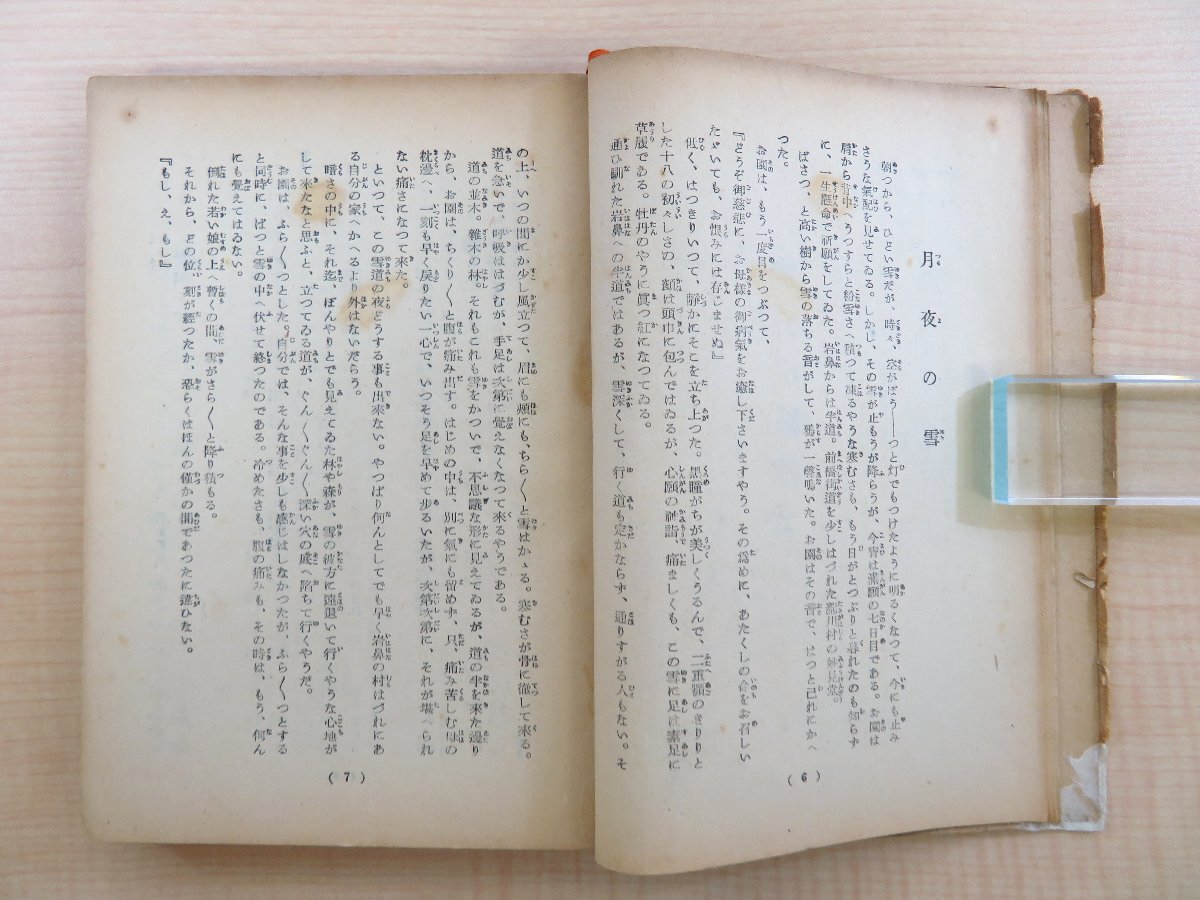 月夜の雪
朝つから、ひどい雪だが、時々、空がぼう――つと灯でもつけたように明るくなつて、今にも止み
さうな氣配を見せてゐる。しかし、その雪が止もうが降らうが、今宵は滿願の七日目である。お園は
肩から背中へうつすらと粉雪さへ積つて凍るやうな寒むさも、もう日がとつぷりと暮れたのも知らず
に、一生懸命で祈願をしてゐた。岩鼻からは半道。前橋街道を少しはづれた瀧川村の妙見堂。
ばさつ、と高い樹から雪の落ちる音がして、鴉が一聲鳴いた。お園はその音で、はつと己れにかへ
つた。
お園は、もう一度目をつぶつて、
『どうぞ御慈悲に、お母樣の御病氣をお癒し下さいますやう。その爲めに、あたくしの命をお召しい
たゞいても、お恨みには存じませぬ』
低く、はつきりいつて、靜かにそこを立ち上つた。黑瞳がちが美しくうるんで、二重顎のきりりと
した十八の初々しさの、顏は頭巾に包んではゐるが、心願の神詣、痛ましくも、この雪に足は素足に
草履である。牡丹のやうに眞つ紅になつてゐる。
通ひ馴れた岩鼻への半道ではあるが、雪深くして、行く道も定かならず、通りすがる人もない。そ
(6)
の上、いつの間にか少し風立つて、眉にも頰にも、ちら〱と雪はかゝる。寒むさが骨に徹して來る。
道を急いで、呼吸ははづむが、手足は次第に覺えなくなつて來るやうである。
道の並木。雜木の林。それもこれも雪をかついで、不思議な形に見えてゐるが、道の半を來た邊り
から、お園は、ちくり〱と腹が痛み出す。はじめの中は、別に氣にも留めず、只、痛み苦しむ母の
枕邊へ、一刻も早く戾りたい一心で、いつそう足を早めて步るいたが、次第次第に、それが堪へられ
ない痛さになつて來た。
といつて、この雪道の夜どうする事も出來ない。やつぱり何んとしてでも早く岩鼻の村はづれにあ
る自分の家へ、かへるより外はないだらう。
暗さの中に、それ迄、ぼんやりとでも見えてゐた林や森が、雪の彼方に遠退いて行くやうな心地が
して來たなと思ふと、立つてる道が、ぐん〱ぐん〱深い穴の底へ陷ちて行くやうだ。
お園は、ふら〱つとした。自分では、そんな事を少しも感じはしなかつたが、ふら〱つとする
と同時に、ばつと雪の中へ伏せて終つたのである。冷めたさも、腹の痛みも、その時は、もう、何ん
にも覺えてはゐない。
倒れた若い娘の上へ暫くの間、雪がさら〱と降り積もる。
それから、どの位、刻が經つたか、恐らくはほんの僅かの間であつたに違ひない。
『もし、え、もし』
(7)